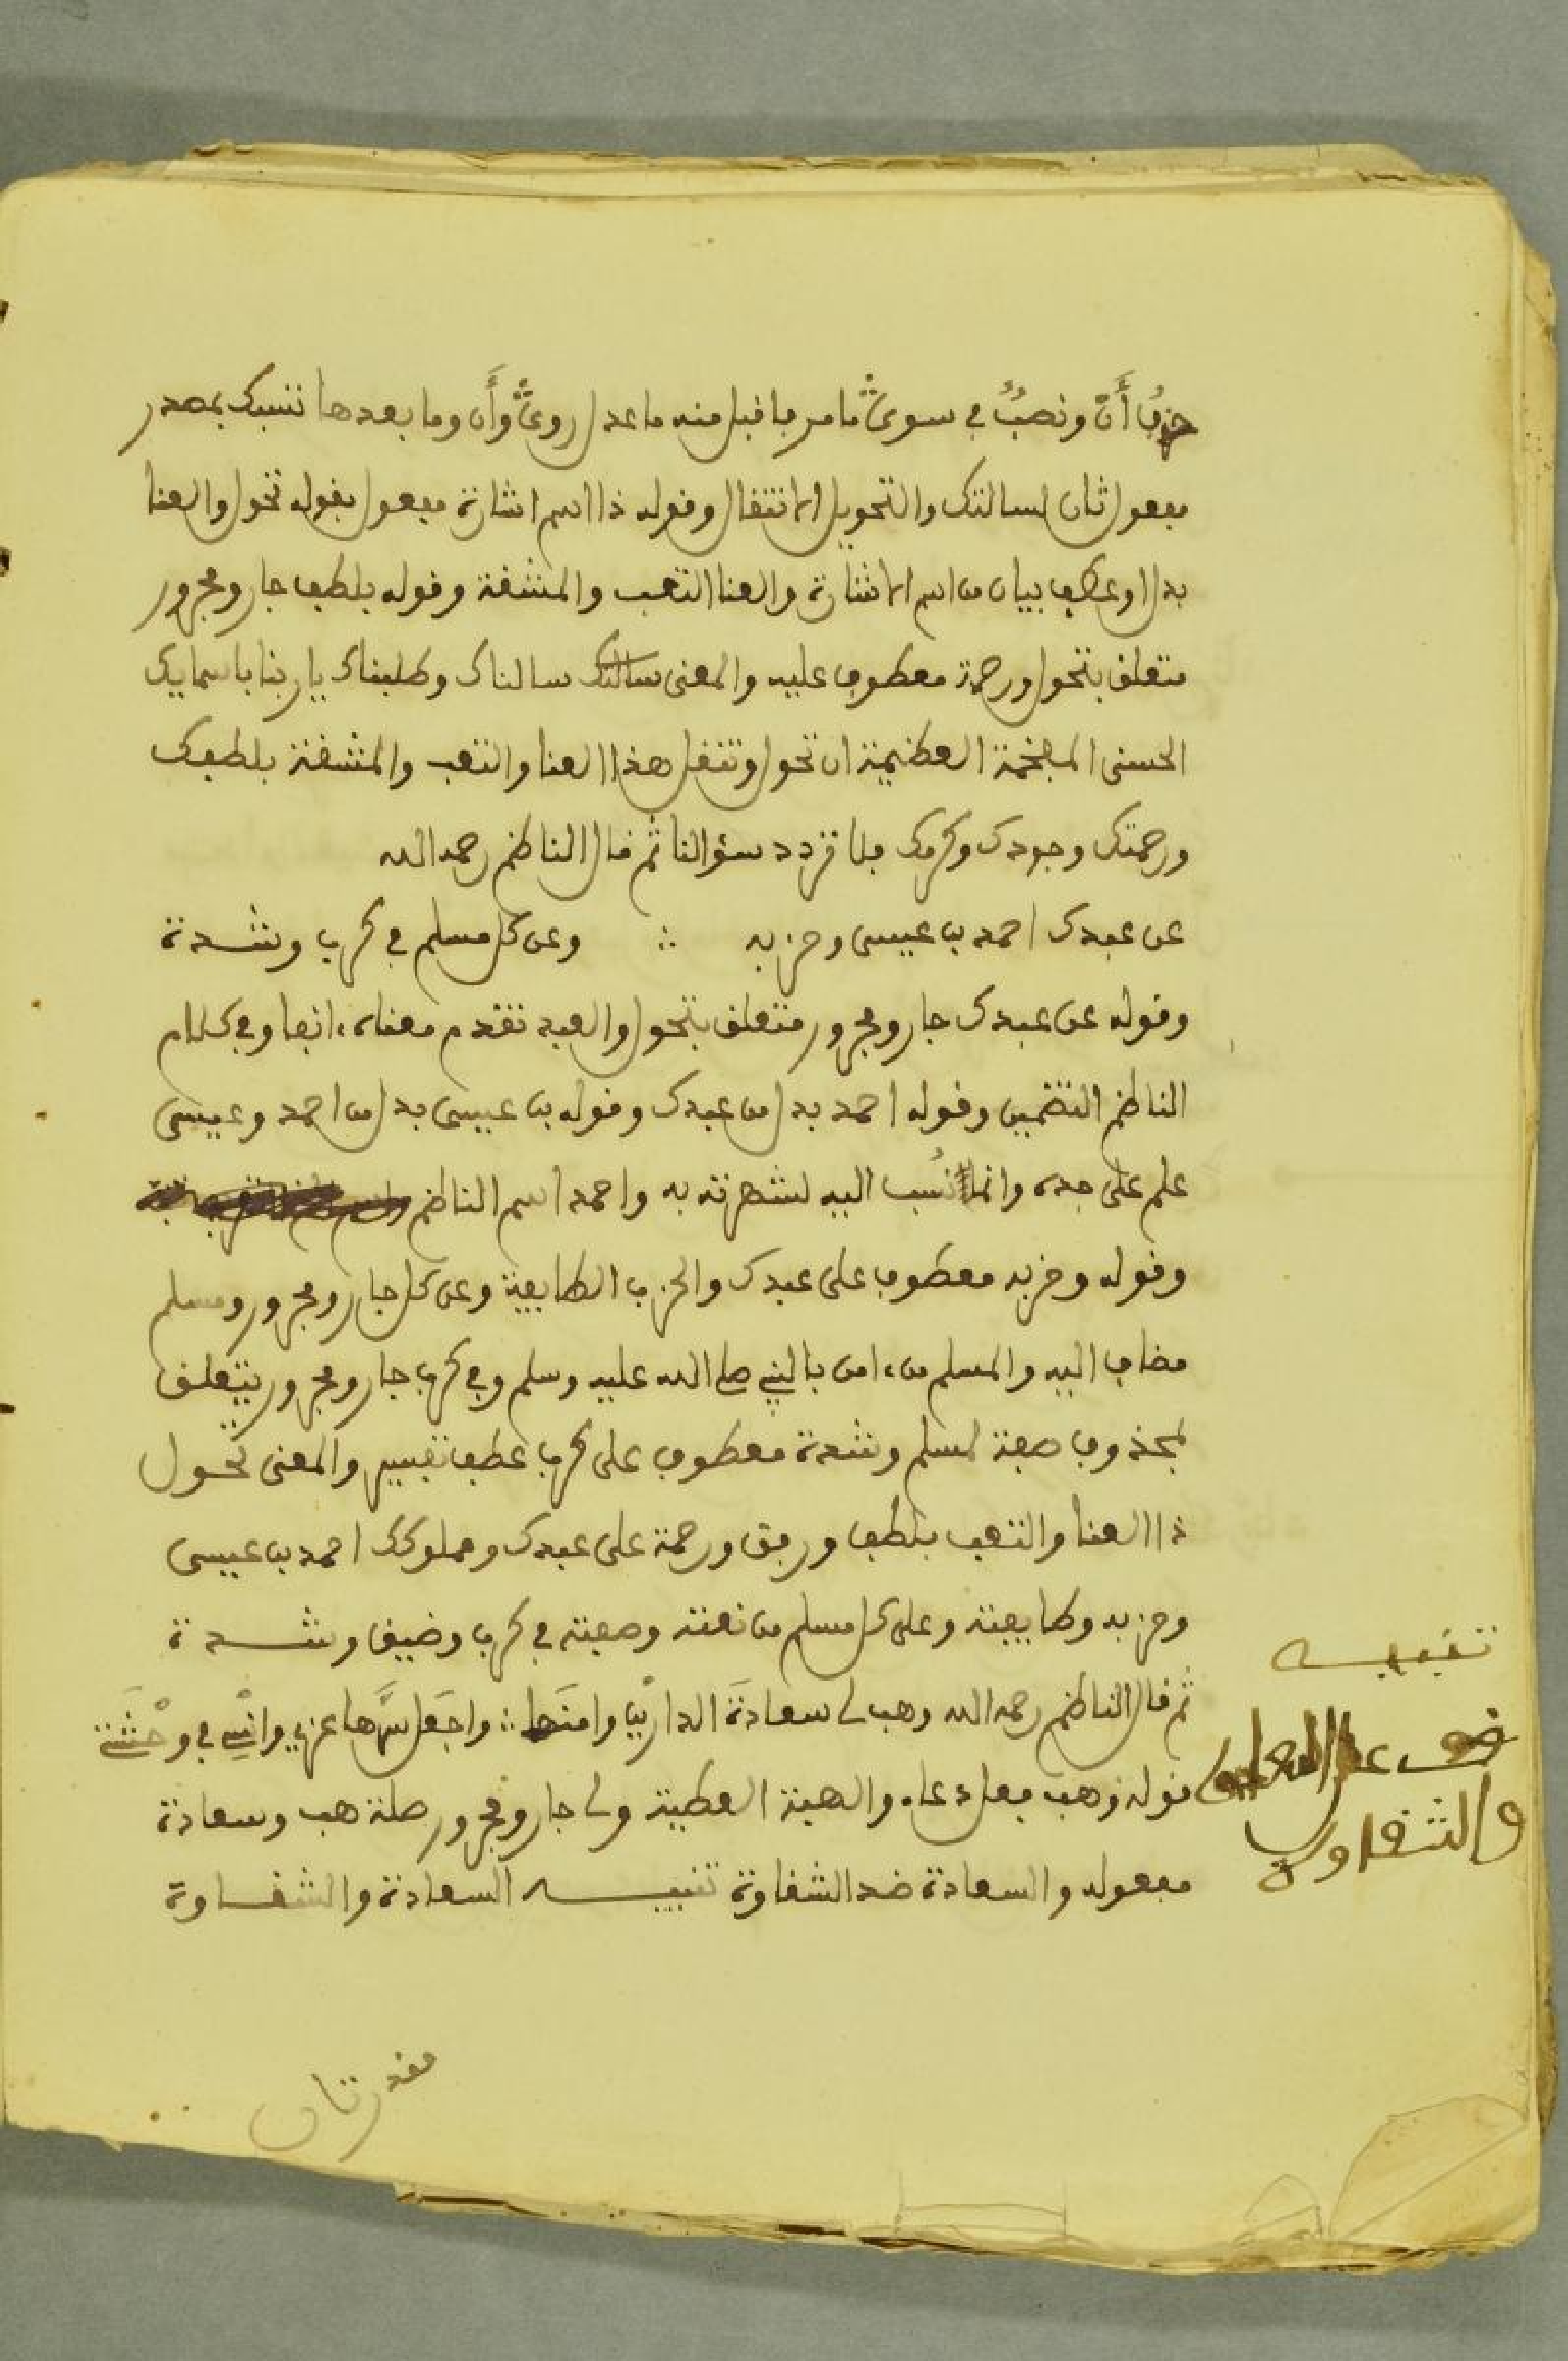 حذف أَنْ ونصبٌ في سوىً ما مر فاقبل منه ما عدل روىً وأَن وما بعدها تنسبك بمصدر
مفعول ثان لسالتك والتحويل الانتقال وقوله ذا اسم اشارة مفعول بقوله تحول والعنا
بدل او عطف بيان من اسم الاشارة والعنا التعب والمشقة وقوله بلطف جار ومجرور
متعلق بتحول ورحمة معطوف عليه والمعنى سالناك وطلبناك يا ربنا باسمايك
الحسنى المفخمة العظيمة ان تحول وتنقل هذا العنا والتعب والمشقة بلطفك
ورحمتك وجودك وكرمك فلا تردد سؤالنا ثم قال الناظم رحمه الله
عن عبدك احمد بن عيسى وحزبه ∴ وعن كل مسلم في كرب وشدة
وقوله عن عبدك جار ومجرور متعلق بتحول والعبد تقدم معناه ءانفا وفي كلام
الناظم التضمين وقوله احمد بدل من عبدك وقوله بن عيسى بدل من احمد وعيسى
علم على جده وانما نُسب اليه لشهرته به واحمد اسم الناظم
وقوله وحزبه معطوف على عبدك والحزب الطايفة وعن كل جار ومجرور ومسلم
مضاف اليه والمسلم من ءامن بالنبي صلى الله عليه وسلم وفي كرب جار ومجرور يتعلق
بمحذوف صفة لمسلم وشدة معطوف على كرب عطف تفسير والمعنى تحول
ذا العنا والتعب بلطف ورفق ورحمة على عبدك ومملوكك احمد بن عيسى
وحزبه وطايفته وعلى كل مسلم من نعته وصفته في كرب وضيق وشدة
ثم قال الناظم رحمه الله وهب لي سعادَةَ الدارين وامنَها ∴ واجعَل سرَّها عزي وانْسِي في وحْشَتي
قوله وهب فعل دعاء والهبة العطية ولي جار ومجرور صلة هب وسعادة
مفعوله والسعادة ضد الشقاوة تنبيه السعادة والشقاوة
تنبيه
والشقاوة
مقدرتان